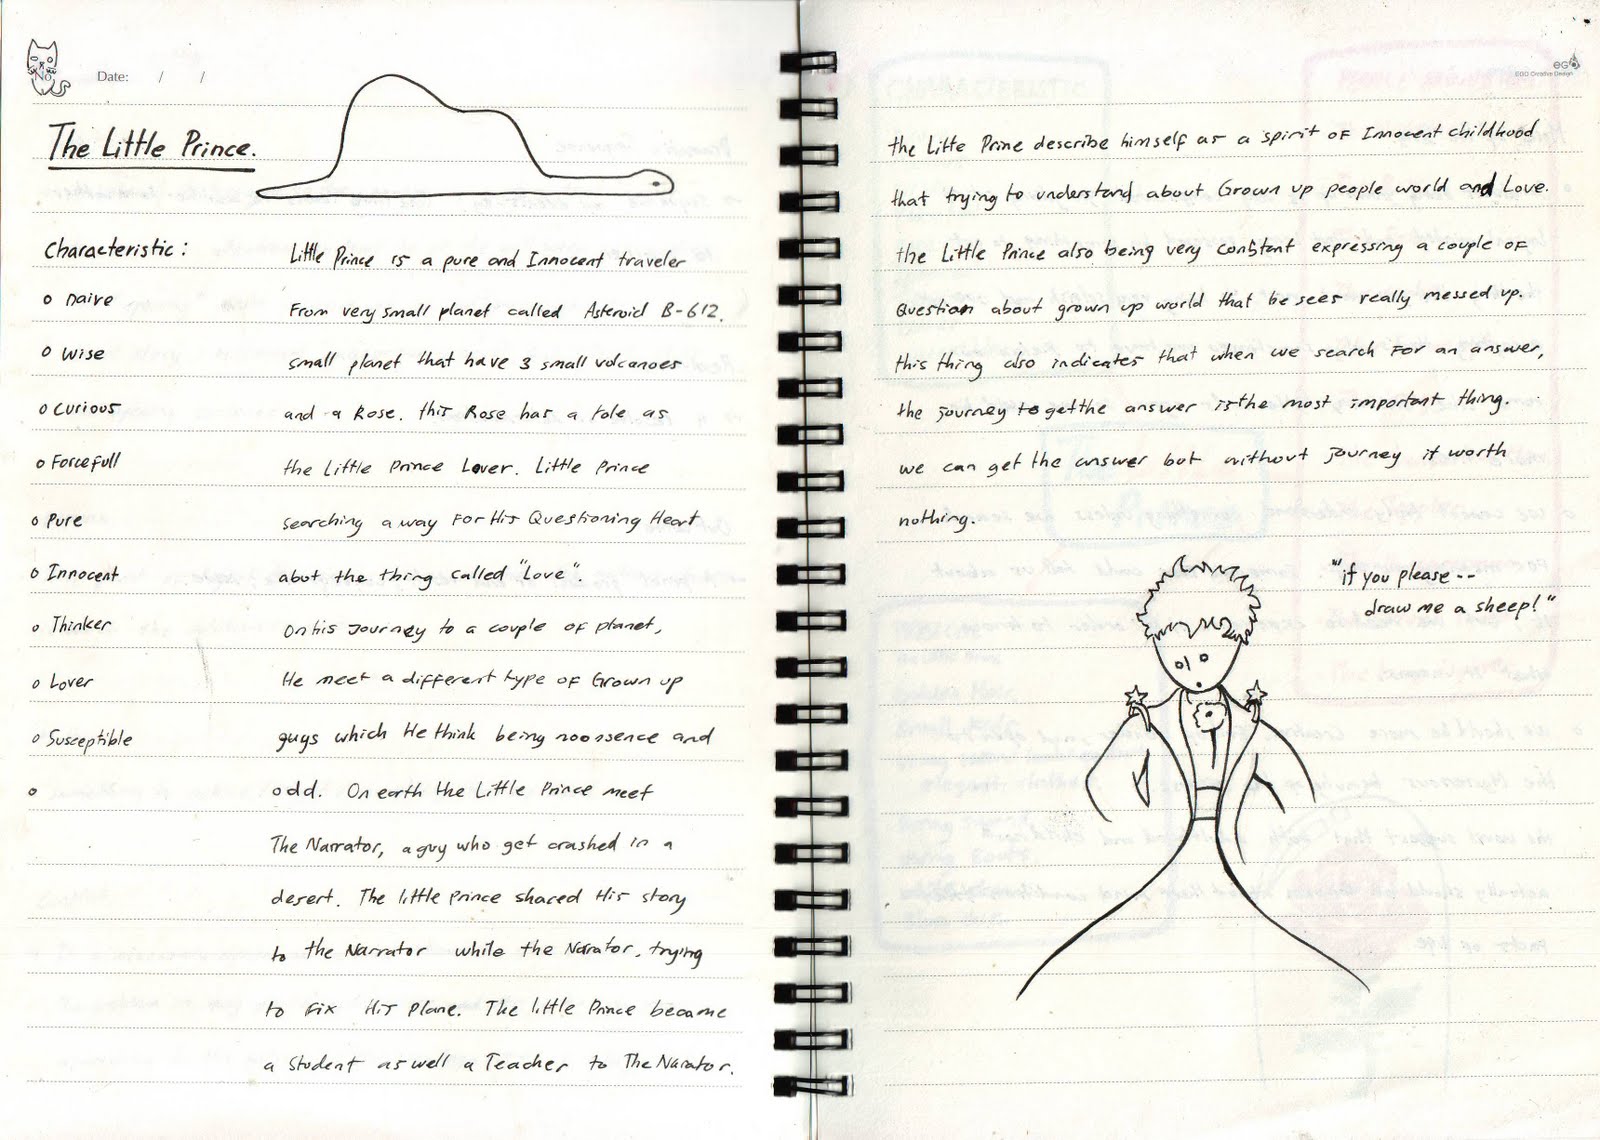 No
Date: / /
The Little Prince.
Characteristic :
naive
wise
curious
Forcefull
Pure
Innocent
Thinker
Lover
Susceptible
Little Prince is a pure and Innocent traveler
From very small planet called Asteroid B-612.
small planet that have 3 small volcanoes
and a Rose. this Rose has a role as
the Little Prince Lover. Little Prince
searching a way For His Questioning Heart
about the thing called "Love".
On his Journey to a couple of planet,
He meet a different type of Grown up
guys which He think being noonsence and
odd. On earth the Little Prince meet
The Narrator, a guy who get crashed in a
desert. The little prince shared His story
to the Narrator while the Narator, trying
to Fix His plane. The little Prince became
a student as well a Teacher to The Narator.
EGO
EGO Creative Design
the Little Prine describe himself as a spirit of Innocent childhood
that trying to understand about Grown up people world and Love.
the Little Prince also being very constant expressing a couple of
Question about grown up world that be sees really messed up.
this thing also indicates that when we search For an answer,
the journey to get the answer is the most important thing.
we can get the answer but without journey it worth
nothing.
"if you please --
draw me a sheep!"